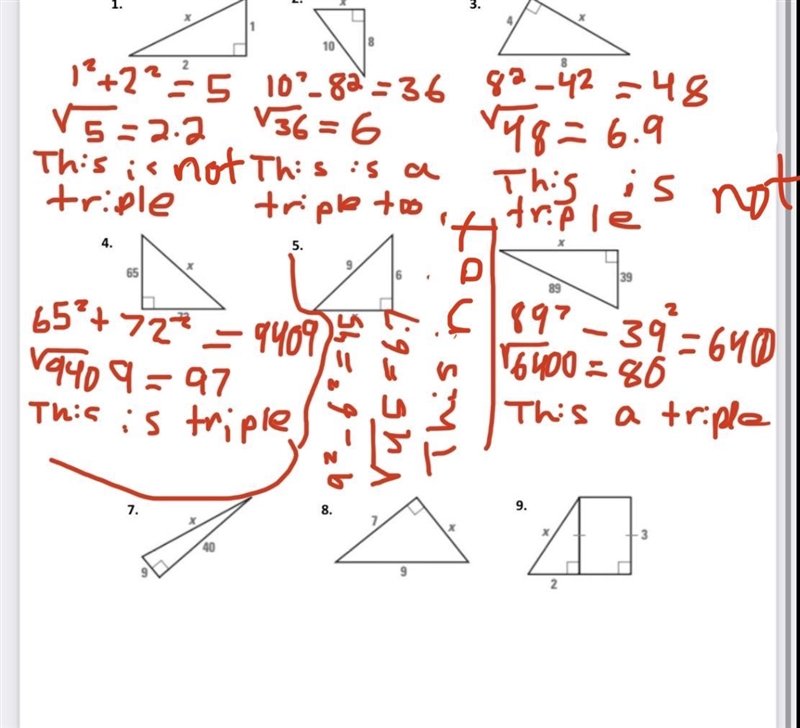 1.
x
1
2
1² + 2² = 5
√5 = 2.2
This is not
triple
10
8
10² - 8² = 36
√36 = 6
This is a
triple too
3.
4
x
8
8² - 4² = 48
√48 = 6.9
This is not
triple
4.
65
x
65² + 72² = 9409
√9409 = 97
This is triple
5.
9
6
9² - 6² = 45
This is
x
39
89
89² - 39² = 6400
√6400 = 80
This a triple
7.
x
40
9
8.
7
x
9
9.
x
3
2